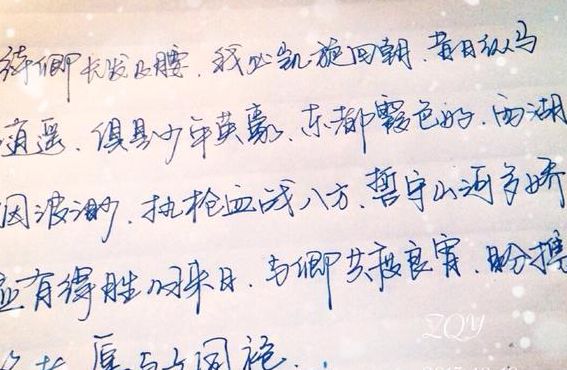 待卿长发及腰，我必凯旋回朝，昔日纵马
逍遥，俱是少年英豪，东都霞色好，西湖
因波渺，执枪血战八方，誓守山河多娇
应有得胜归来日，与卿共度良宵，盼携
ZQY